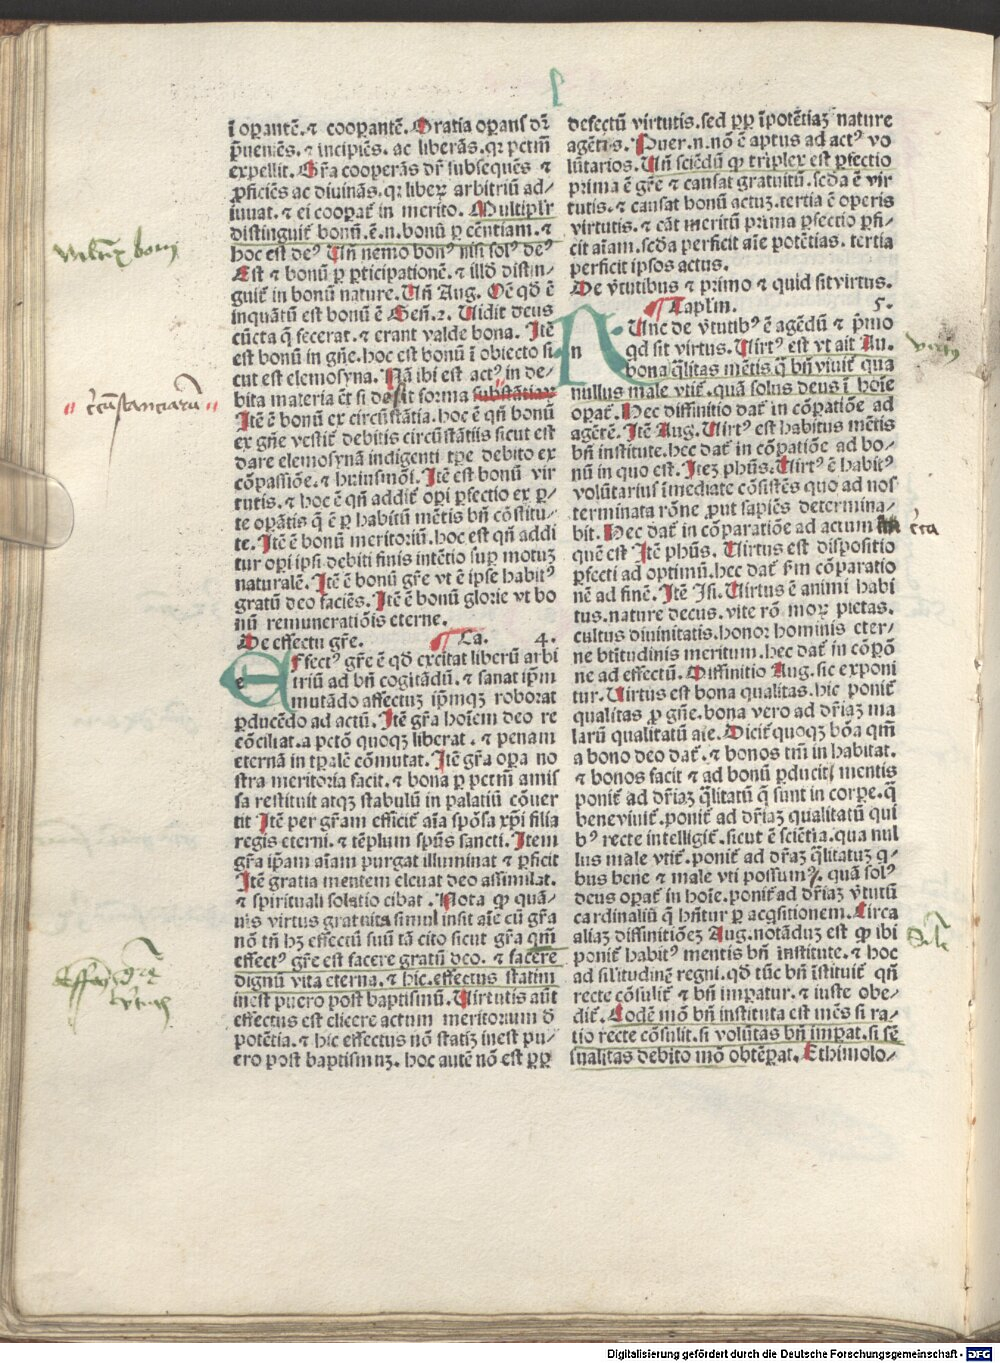 ī oꝑantē.⁊ cooꝑantē.Gratia oꝑans dꝛ
p̄ueniēs.⁊ incipiēs. ac liberās.qꝛ pctm̄
expellit.Gr̄a cooperās dr̄ subsequēs ⁊
ꝓficiēs ac diuinās.qꝛ libeꝝ arbitriū ad⸗
iuuat.⁊ ei cooꝑat᷒ in merito. Multiplr̄
distinguit᷒ bonū.ē.n.bonū ꝑ cēntiam.⁊
hoc est deꝰ Un̄ nemo bonꝰ nisi solꝰ deꝰ
Est ⁊ bonū ꝑ ꝑticipationē.⁊ illd̄ distin⸗
guit᷒ in bonū nature.Un̄ Aug. Oē qd̄ ē
inquātū est bonū ē Gen̄.2. Uidit deus
cūcta q̄ fecerat.⁊ erant valde bona. Itē
est bonū in gn̄e.hoc est bonū ī obiecto si
cut est elemosyna.Nā ibi est actꝰ in de⸗
bita materia et᷒ si desit forma substātiaꝝ
Itē ē bonū ex circūstātia.hoc ē qn̄ bonū
ex gn̄e vestit᷒ debitis circūstātiis sicut est
dare elemosynā indigenti tꝑe debito ex
cōpassiōe.⁊ huiusmōi.Itē est bonū vir
tutis.⁊ hoc ē qn̄ addit᷒ oꝑi ꝑfectio ex ꝑ⸗
te oꝑātis q̄ ē ꝑ habitū mētis bn̄ cōstitu⸗
te.Itē ē bonū meritoriū.hoc est qn̄ addi
tur oꝑi ipsi debiti finis intētio suꝑ motuꝫ
naturalē.Itē ē bonū gr̄e vt ē ipse habitꝰ
gratū deo faciēs.Itē ē bonū glorie vt bo
nū remuneratiōis eterne.
De effectu gr̄e. ¶Ca. 4.
e Ffectꝰ gr̄e ē qd̄ excitat liberū arbi
triū ad bn̄ cogitādū.⁊ sanat ip̄m
mutādo affectuꝫ ip̄mqꝫ roborat
ꝑducēdo ad actū.Itē gr̄a hoīem deo re
cōciliat.a pctō quoqꝫ liberat.⁊ penam
eternā in tꝑalē cōmutat.Itē gr̄a oꝑa no
stra meritoria facit.⁊ bona ꝑ pctm̄ amis
sa restituit atqꝫ stabulū in palatiū cōuer
tit Itē per gr̄am efficit᷒ aīa spōsa xp̄i filia
regis eterni.⁊ tēplum spūs sancti.Item
gr̄a ip̄am aīam purgat illuminat ⁊ ꝑficit
Itē gratia mentem eleuat deo assimilat.
⁊ spirituali solatio cibat.Nota ꝙ quā⸗
uis virtus gratuita simul insit aīe cū gr̄a
nō tn̄ hꝫ effectū suū tā cito sicut gr̄a qm̄
effectꝰ gr̄e est facere gratū deo.⁊ facere
dignū vita eterna.⁊ hic.effectus statim
inest puero post baptismū.Uirtutis aūt
effectus est elicere actum meritorium d̄
potētia.⁊ hic effectus nō statiꝫ inest pu⸗
ero post baptismuꝫ. hoc autē nō est ꝓꝑ
defectū virtutis.sed ꝓꝑ īpotētiaꝫ nature
agētis.Puer.n.nō ē aptus ad actꝰ vo
lūtarios.Un̄ sciēdū ꝙ triplex est ꝑfectio
prima ē gr̄e ⁊ causat gratuitū.scd̄a ē vir
tutis.⁊ causat bonū actuꝫ.tertia ē operis
virtutis.⁊ cāt meritū prima ꝑfectio ꝑfi⸗
cit aīam.scd̄a perficit aīe potētias. tertia
perficit ipsos actus.
De v̄tutibus ⁊ primo ⁊ quid sit virtus.
¶Caplm. 5.
n Unc de v̄tutibꝰ ē agēdū ⁊ p̄mo
qd sit virtus.Uirtꝰ est vt ait Au.
bona q̄litas mētis q̄ bn̄ viuit᷒ qua
nullus male vtit᷒.quā solus deus ī hoīe
oꝑat᷒.Hec diffinitio dat᷒ in cōꝑatiōe ad
agētē.Itē Aug.Uirtꝰ est habitus mētis
bn̄ institute.hec dat᷒ in cōꝑatiōe ad bo⸗
nū in quo est.Iteꝫ ph̄us.Uirtꝰ ē habitꝰ
volūtarius īmediate cōsistēs quo ad nos
terminata rōne ꝓut sapiēs determina⸗
bit.Hec dat᷒ in cōparatiōe ad actum
quē est Itē ph̄us. Uirtus est dispositio
ꝑfecti ad optimū.hec dat᷒ ẜm cōparatio
nē ad finē. Itē Isi.Uirtus ē animi habi
tus.nature decus.vite rō.moꝝ pietas.
cultus diuinitatis.honor hominis eter⸗
ne bt̄itudinis meritum.hec dat᷒ in cōꝑō
ne ad effectū. Diffinitio Aug.sic exponi
tur.Uirtus est bona qualitas.hic ponit᷒
qualitas ꝓ gn̄e.bona vero ad dr̄iaꝫ ma
larū qualitatū aīe.Dicit᷒ quoqꝫ bōa qm̄
a bono deo dat᷒.⁊ bonos tm̄ in habitat.
⁊ bonos facit ⁊ ad bonū ꝑducit/ mentis
ponit᷒ ad dr̄iaꝫ q̄litatū q̄ sunt in corꝑe.q̄
beneviuit᷒.ponit᷒ ad dr̄iaꝫ qualitatū qui
bꝰ recte intelligit᷒.sicut ē sciētia.qua nul
lus male vtit᷒.ponit᷒ ad dr̄iaꝫ q̄litatuꝫ q⸗
bus bene ⁊ male vti possumꝰ. quā solꝰ
deus oꝑat᷒ in hoīe.ponit᷒ ad dr̄iaꝫ v̄tutū
cardinaliū q̄ hn̄tur ꝑ acq̄sitionem.Circa
aliaꝫ diffinitiōeꝫ Aug.notāduꝫ est ꝙ ibi
ponit᷒ habitꝰ mentis bn̄ institute.⁊ hoc
ad sil̄itudinē regni.qd̄ tūc bn̄ īstituit᷒ qn̄
recte cōsulit᷒ ⁊ bn̄ imꝑatur.⁊ iuste obe⸗
dit᷒.Eodē mō bn̄ instituta est mēs si ra⸗
tio recte cōsulit.si volūtas bn̄ imꝑat.si sē
sualitas debito mō obtēꝑat.Ethimolo⸗
Digitalisierung gefördert durch die Deutsche Forschungsgemeinschaft - DFG